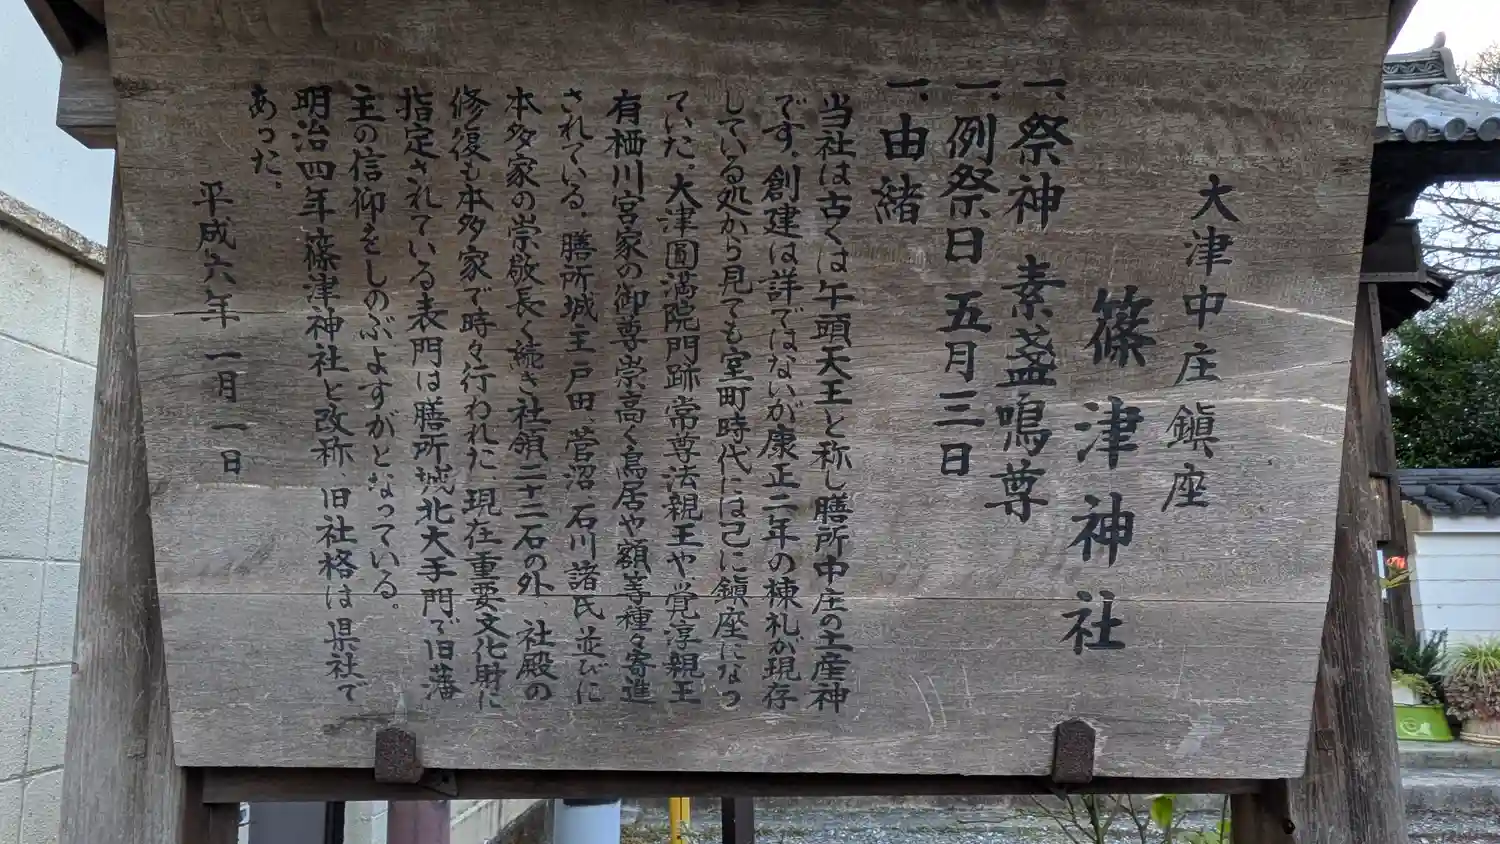 大津中庄鎮座
篠津神社
一、祭神 素盞嗚尊
一、例祭日 五月三日
一、由緒
当社は古くは午頭天王と称し膳所中庄の土産神
です。創建は詳ではないが康正二年の棟札が現存
している処から見ても室町時代には己に鎮座になっ
ていた。大津圓満院門跡常尊法親王や覚淳親王
有栖川宮家の御尊崇高く鳥居や額等種々寄進
されている。膳所城主戸田、菅沼、石川諸氏並びに
本多家の崇敬長く続き社領二十二石の外、社殿の
修復も本多家で時々行われた、現在重要文化財に
指定されている表門は膳所城北大手門で旧藩
主の信仰をしのぶよすがとなっている。
明治四年篠津神社と改称 旧社格は県社で
あった。
平成六年一月一日